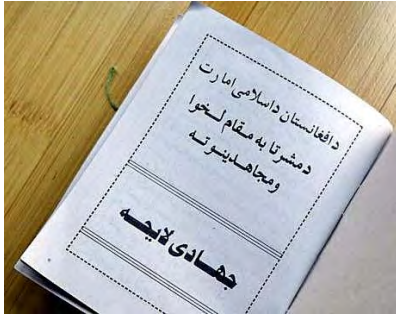 دافغانستان داسلامی امارت
دمشرتابه مقام لخوا
ومجاهدینو ته
جهادی لایحه